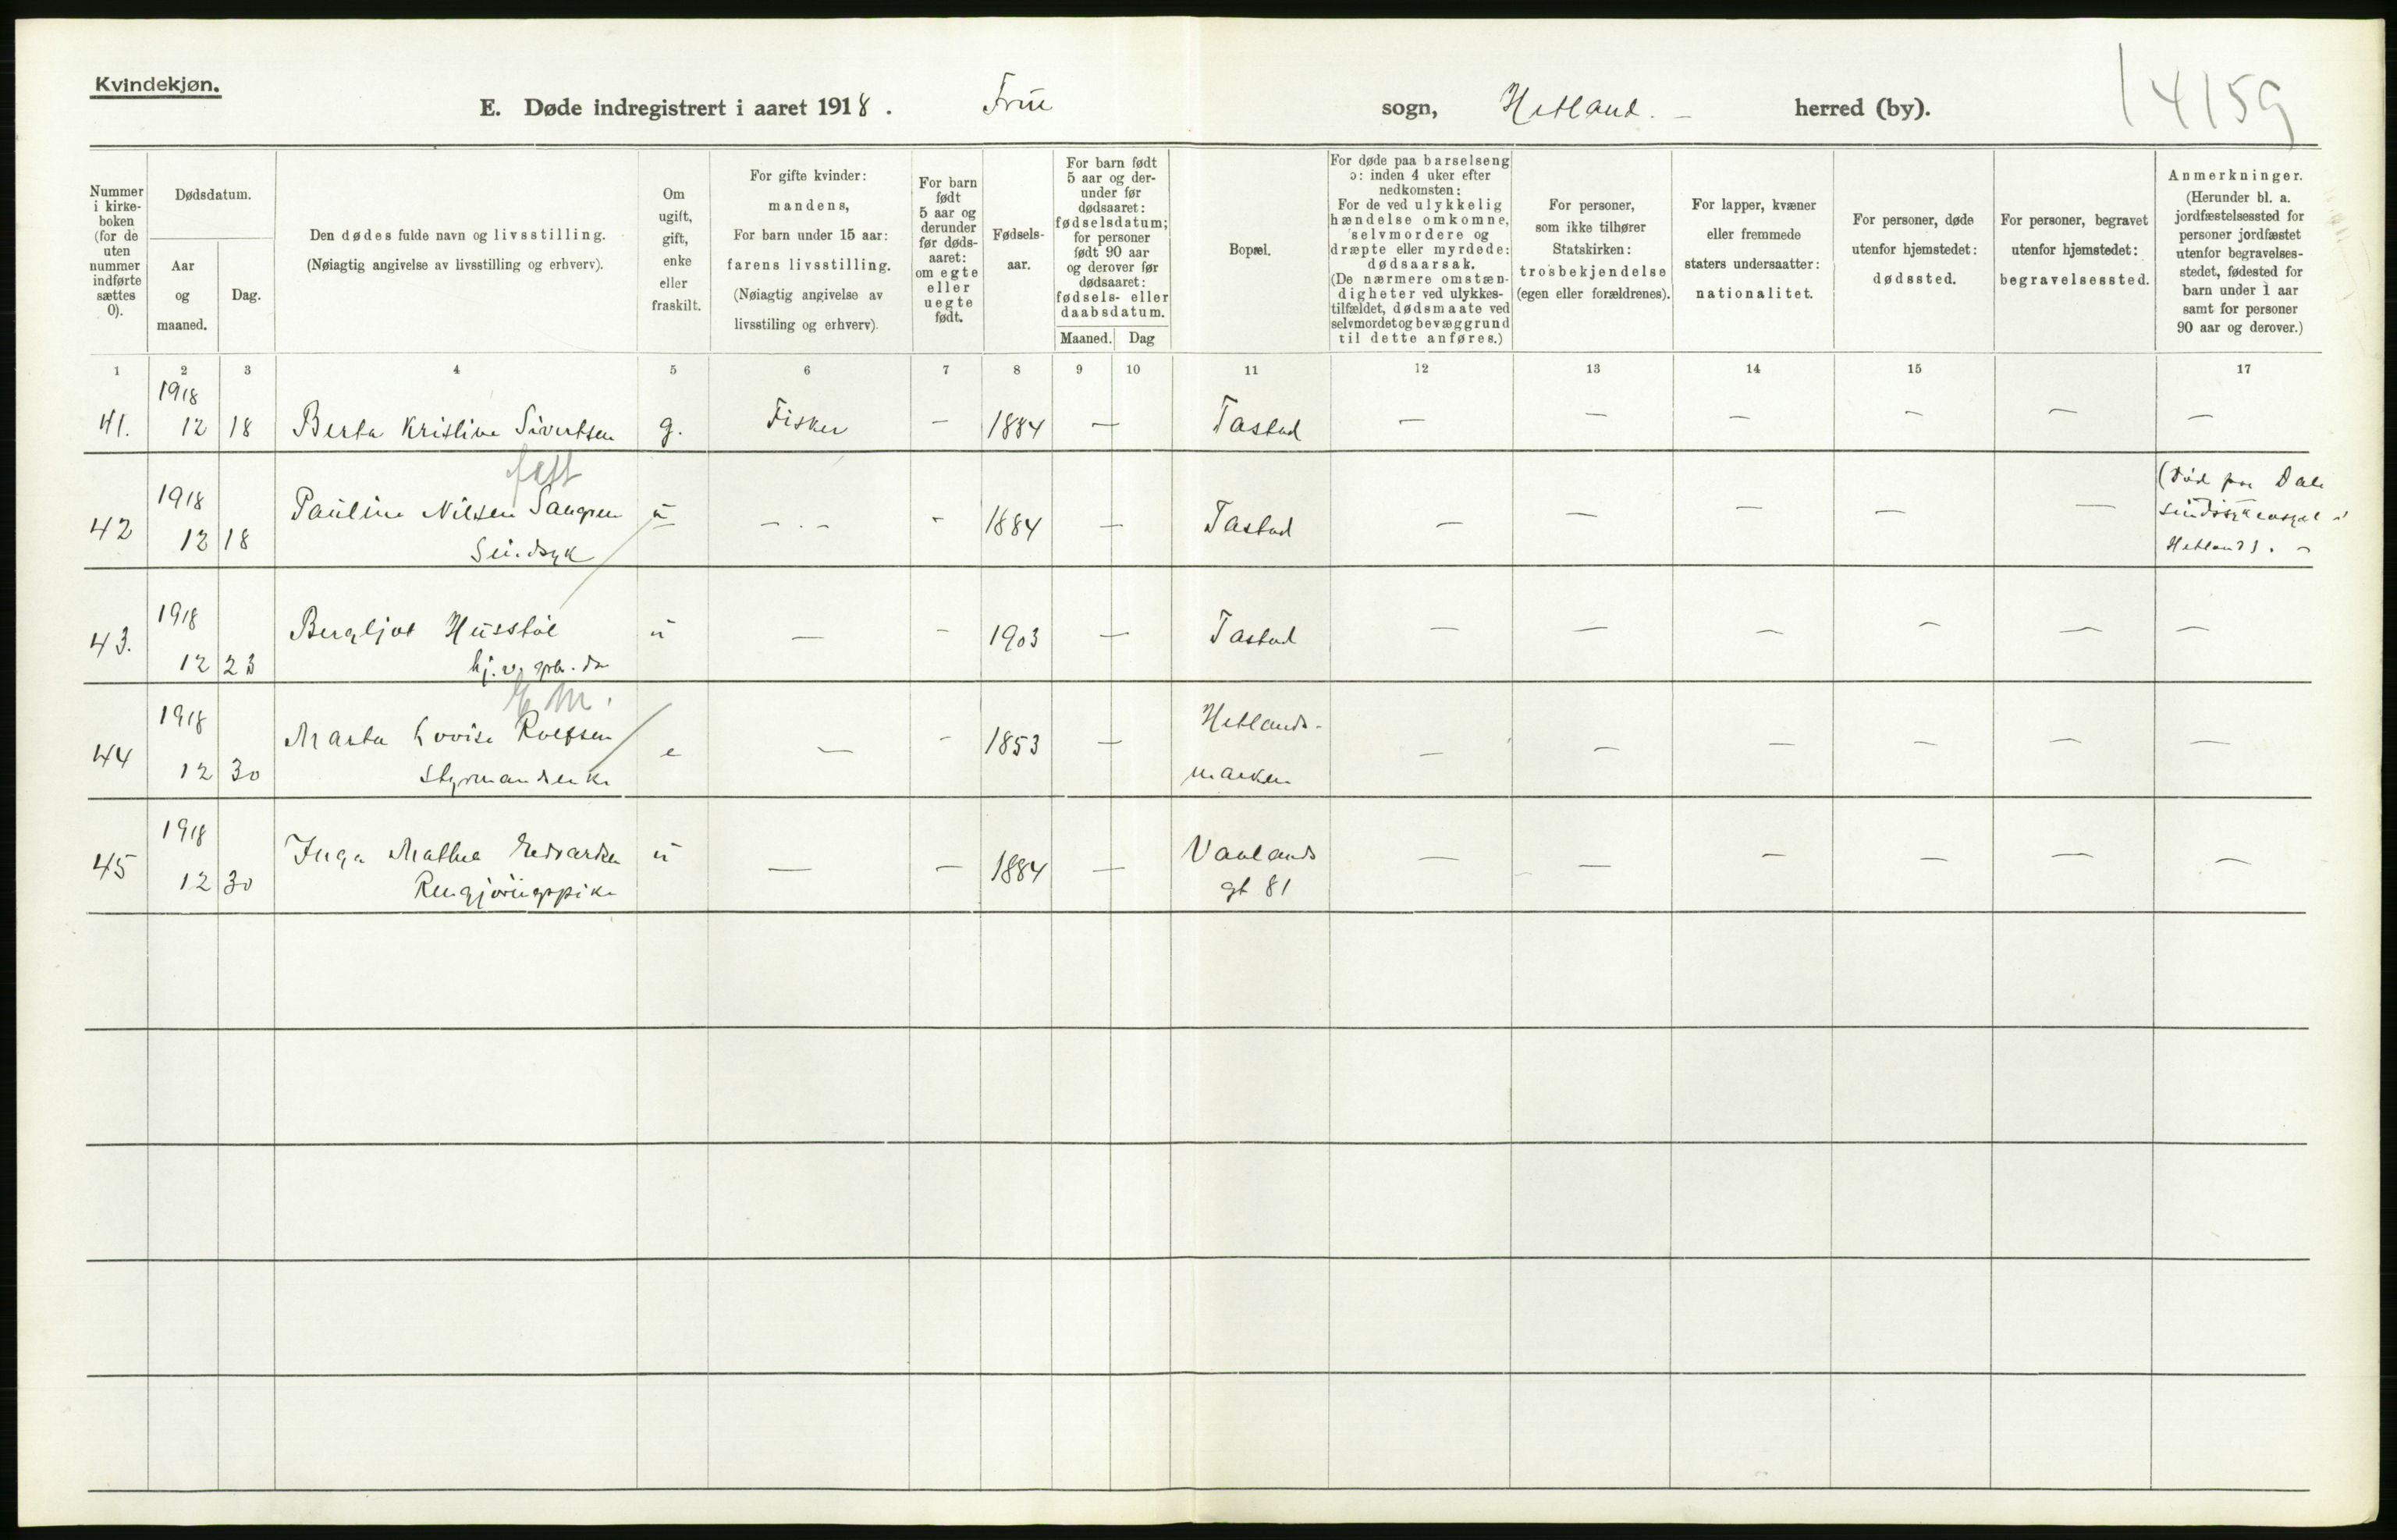 Kvindekjøn.
E. Døde indregistrert i aaret 1918. Frue sogn, Hetland. herred (by).
14159
Nummer i kirke-boken (for de uten nummer indførte sættes 0).
Dødsdatum.
Aar og maaned.
Dag.
Den dødes fulde navn og livsstilling.
(Nøiagtig angivelse av livsstilling og erhverv).
Om ugift, gift, enke eller fraskilt.
For gifte kvinder: mandens,
For barn under 15 aar: farens livsstilling.
(Nøiagtig angivelse av livsstiling og erhverv).
For barn født 5 aar og derunder før døds-aaret: om egte eller uegte født.
Fødsels-aar.
For barn født 5 aar og der-under før dødsaaret: fødselsdatum; for personer født 90 aar og derover før dødsaaret: fødsels- eller daabsdatum.
Maaned. Dag
Bopæl.
For døde paa barselseng ɔ: inden 4 uker efter nedkomsten:
For de ved ulykkelig hændelse omkomne, selvmordere og dræpte eller myrdede: dødsaarsak.
(De nærmere omstæn-digheter ved ulykkes-tilfældet, dødsmaate ved selvmordet og bevæggrund til dette anføres.)
For personer, som ikke tilhører Statskirken: trosbekjendelse (egen eller forældrenes).
For lapper, kvæner eller fremmede staters undersaatter: nationalitet.
For personer, døde utenfor hjemstedet: dødssted.
For personer, begravet utenfor hjemstedet: begravelsessted.
Anmerkninger.
(Herunder bl. a. jordfæstelsessted for personer jordfæstet utenfor begravelses-stedet, fødested for barn under 1 aar samt for personer 90 aar og derover.)
1 2 3 4 5 6 7 8 9 10 11 12 13 14 15 17
1918
41. 12 18 Berta Kristine Sivertsen g. Fisker - 1884 - Tastad - - - - - -
1918
42 12 18 Pauline Nilsen u - . - - 1884 - Tastad - - - - -
Sindsyk
(Død paa Dale
sindssykeasyl i
Hetland).
1918
43. 12 23 Bergljot Husstøl u - - 1903 - Tastad - - - - - -
hj. v.
1918
44 12 30 Marta Lovise Rolfsen e - - 1853 - Hetlands-
marken - - - - - -
Styrmandsenke
1918
45 12 30 Inga Mathea Edvardsen u - - 1884 - Vaalands
gt 81 - - - - - -
Rengjøringspike